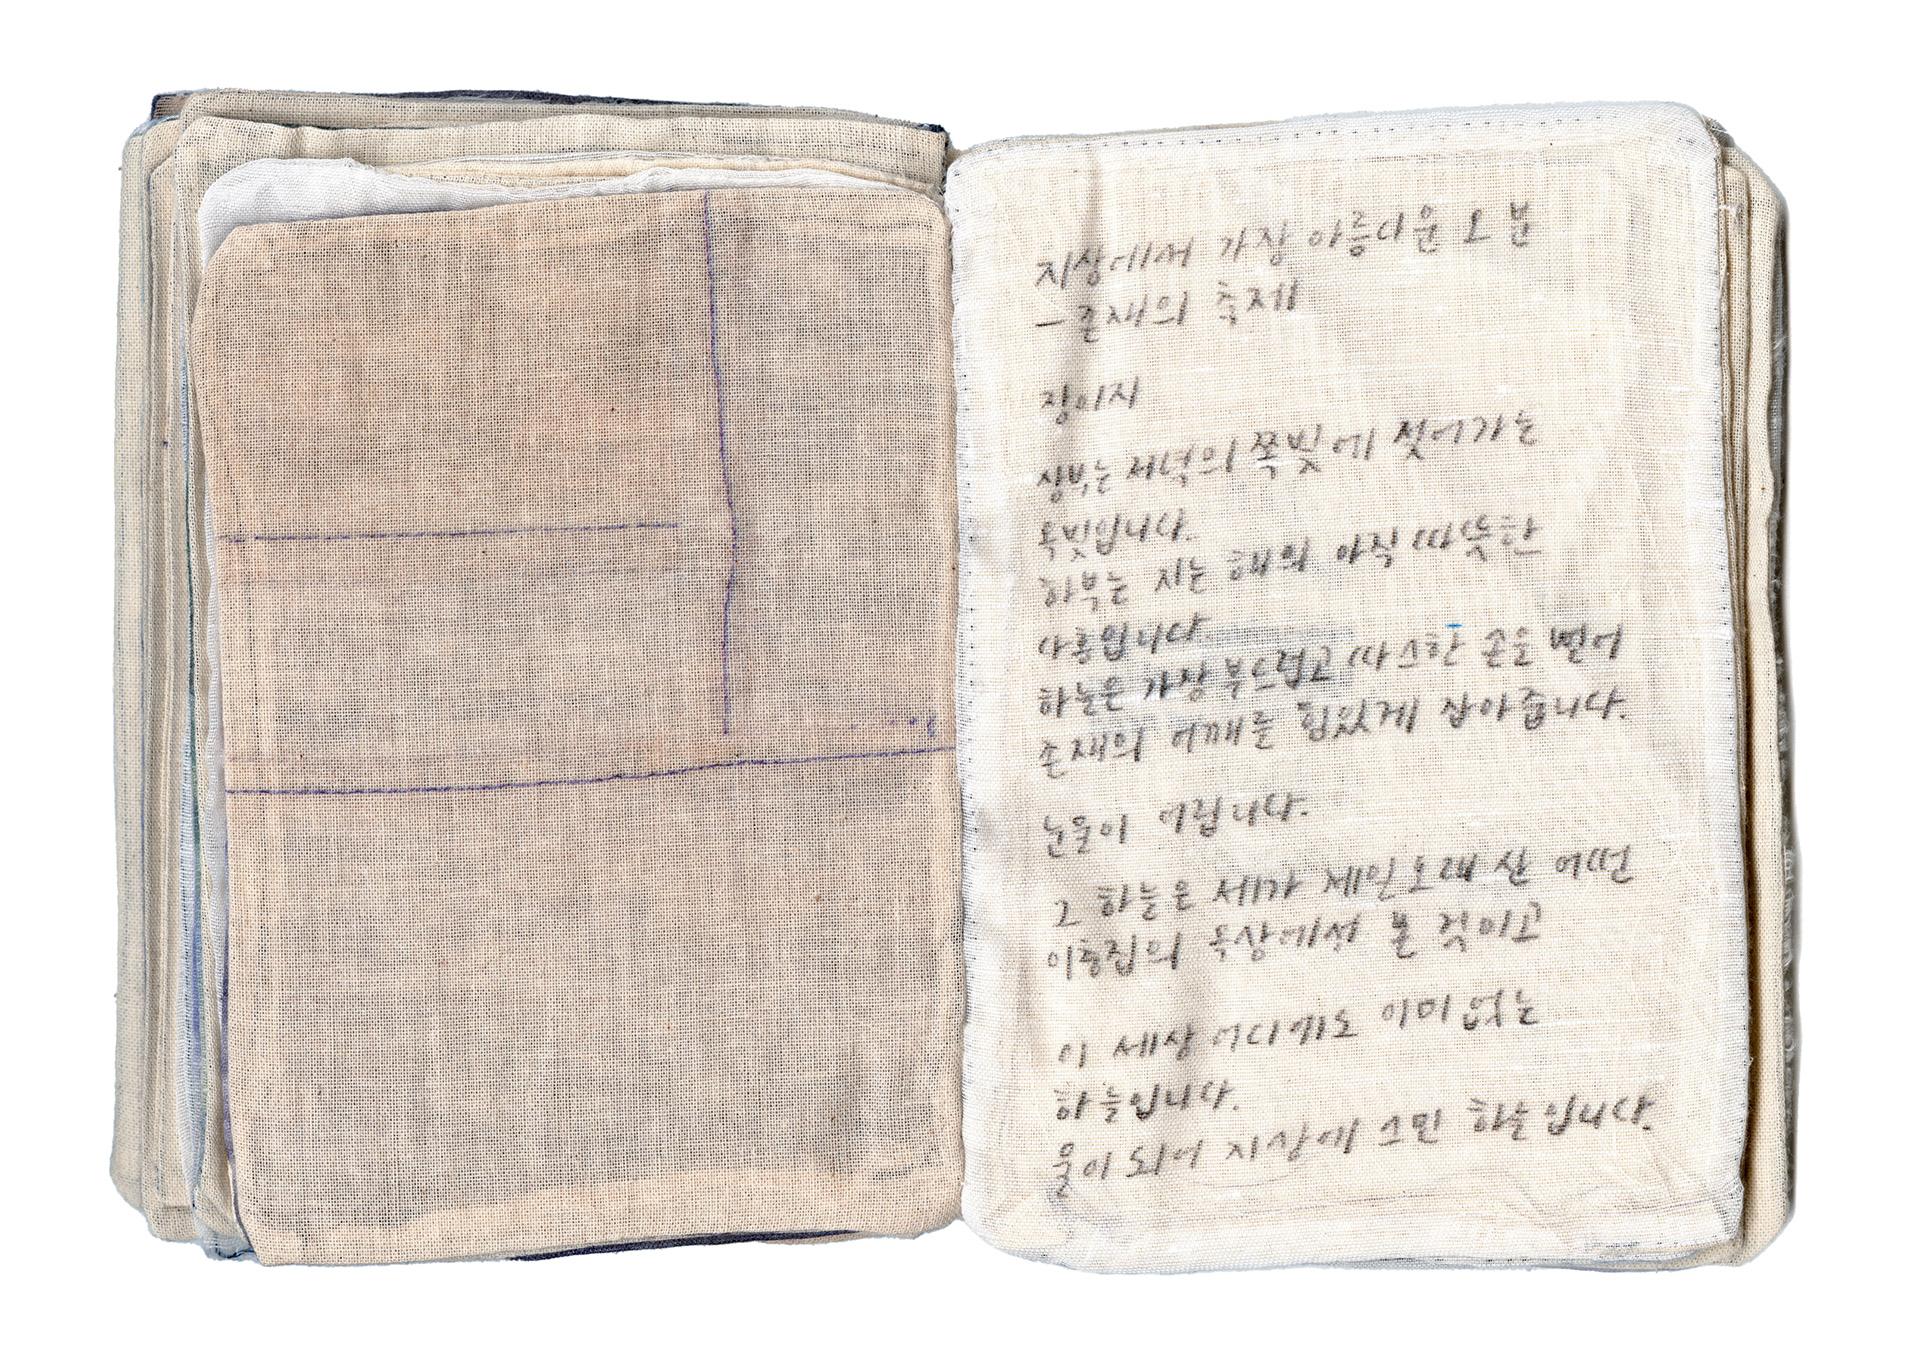 지상에서 가장 아름다운 오 분
–존재의 축제
장이지
상부는 저녁의 쪽빛에 젖어가는
옥빛입니다.
하부는 지는 해의 아직 따뜻한
다홍입니다.
하늘은 가장 부드럽고 따스한 손을 뻗어
존재의 어깨를 힘있게 잡아줍니다.
눈물이 어립니다.
그 하늘은 제가 제일 오래 산 어떤
이층집의 옥상에서 본 것이고
이 세상 어디에도 이미 없는
하늘입니다.
물이 되어 지상에 스민 하늘입니다.